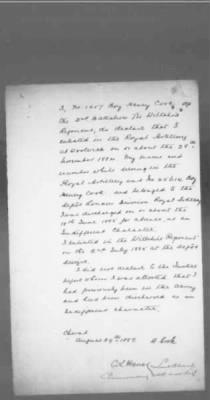 I, No. 1657 Boy Henry Cook, of
the 2nd Battalion The Wiltshire
Regiment, do declare that I
enlisted in the Royal Artillery
at Woolwich on or about the 25th
November 1884. My name and
number while serving in the
Royal Artillery was No 45614, Boy
Henry Cook and belonged to the
depôt London Division Royal Artillery
I was discharged on or about the
18th June 1885 for absence, as an
Indifferent Character.
I enlisted in the Wiltshire Regiment
on the 2nd July 1885 at the depôt
Devizes.
I did not declare to the Justice
before whom I was attested that I
had previously been in the Army
and had been discharged as an
Indifferent character.
August 29th 1887 H Cook